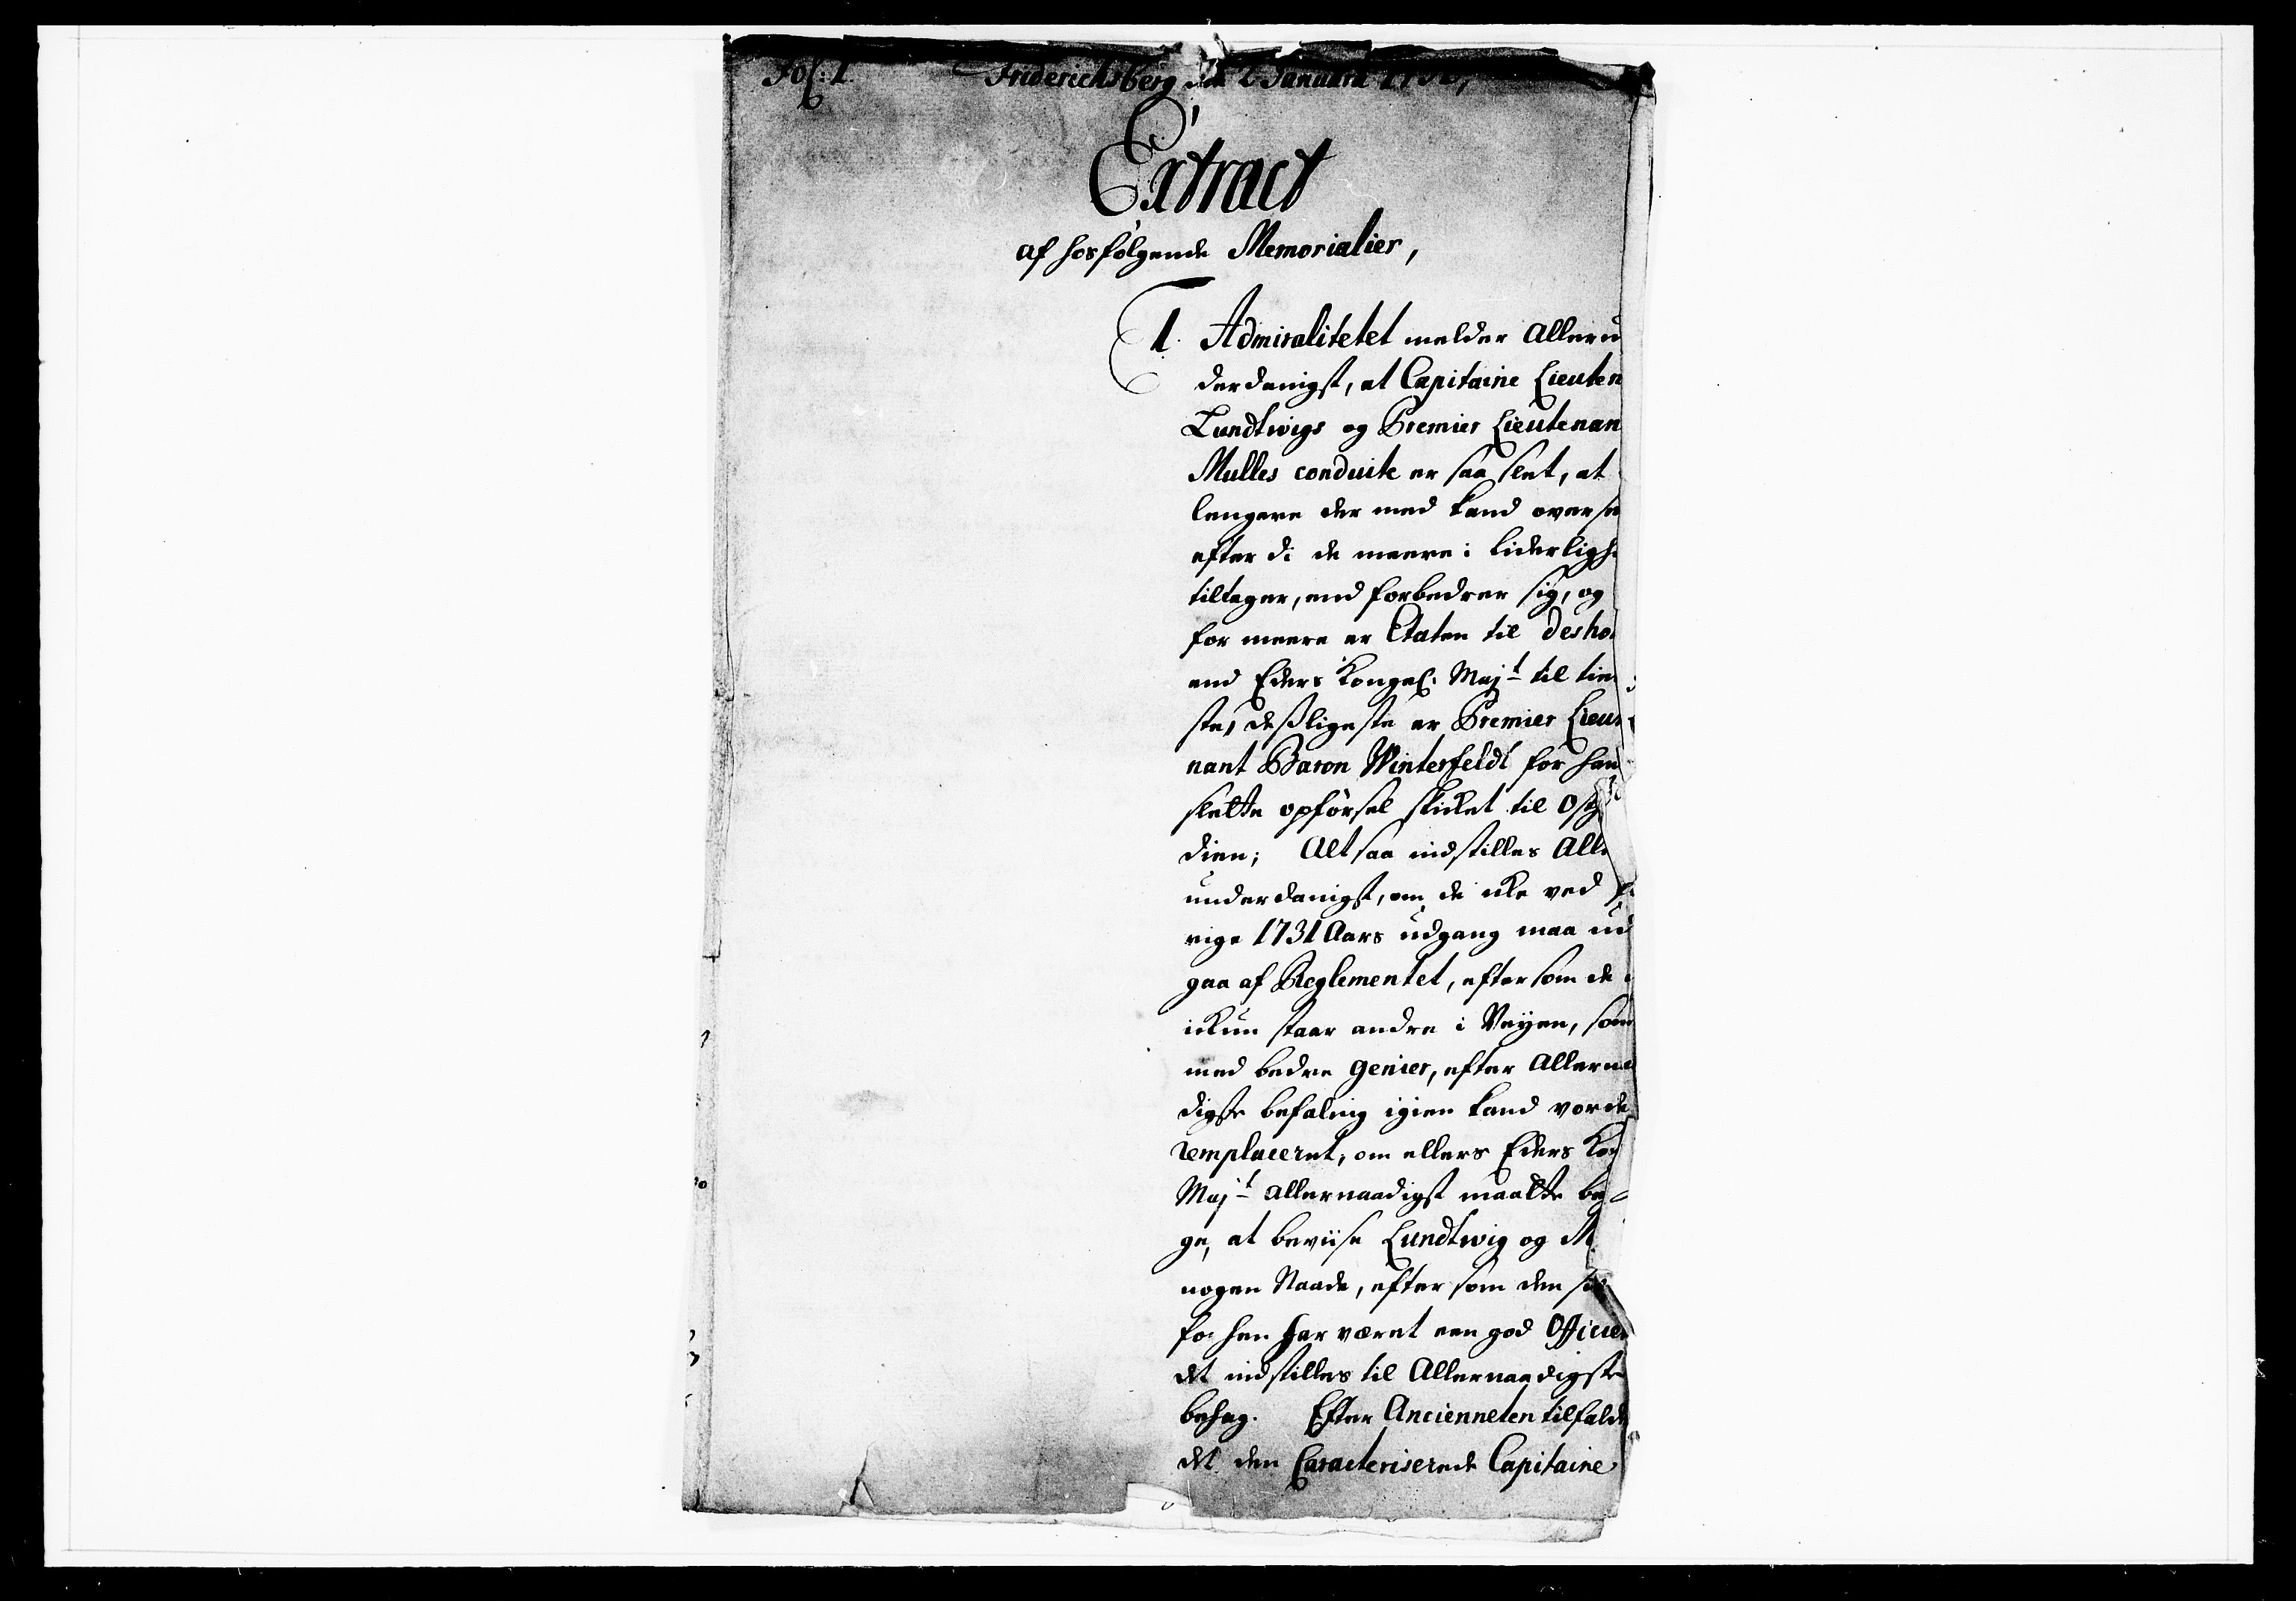 Fol: 1 Friderichsberg den 2 Januarii
Extract
af hosfølgende Memorialier,
1. Admiralitetet melder Alleru
derdanigst, at Capitaine Lieuten
Lundtwigs og Premier Lieutenan
Mulles conduite er saa slet, at
lengere der med kand overse
efterdi de meere i liderligh
tiltager, end forbedrer sig, og
for meere er Etaten til desho
end Eders Kongel. Majt til tien
ste, desligeste er Premier Lieut
nant Baron Winterfeldt for han
slette opførsel skicket til Ost
dien; Alt saa indstilles Alle
underdanigst, om de icke ved
rige 1731 Aars udgang maa ud
gaa af Reglementet, eftersom de
ickun staar andre i Veyen, som
med bedre genier, efter Allerna
digste befaling igien kand vorde
remplaceret, om ellers Eders Kon
Majt allernaadigst maatte be
ge, at beviise Lundtwig og M
nogen Naade, efter som den si
for hen har været een god Officier
det indstilles til Allernaadigste
behag. Efter Ancienneten tilfalde
det den Caracteriserede Capitaine